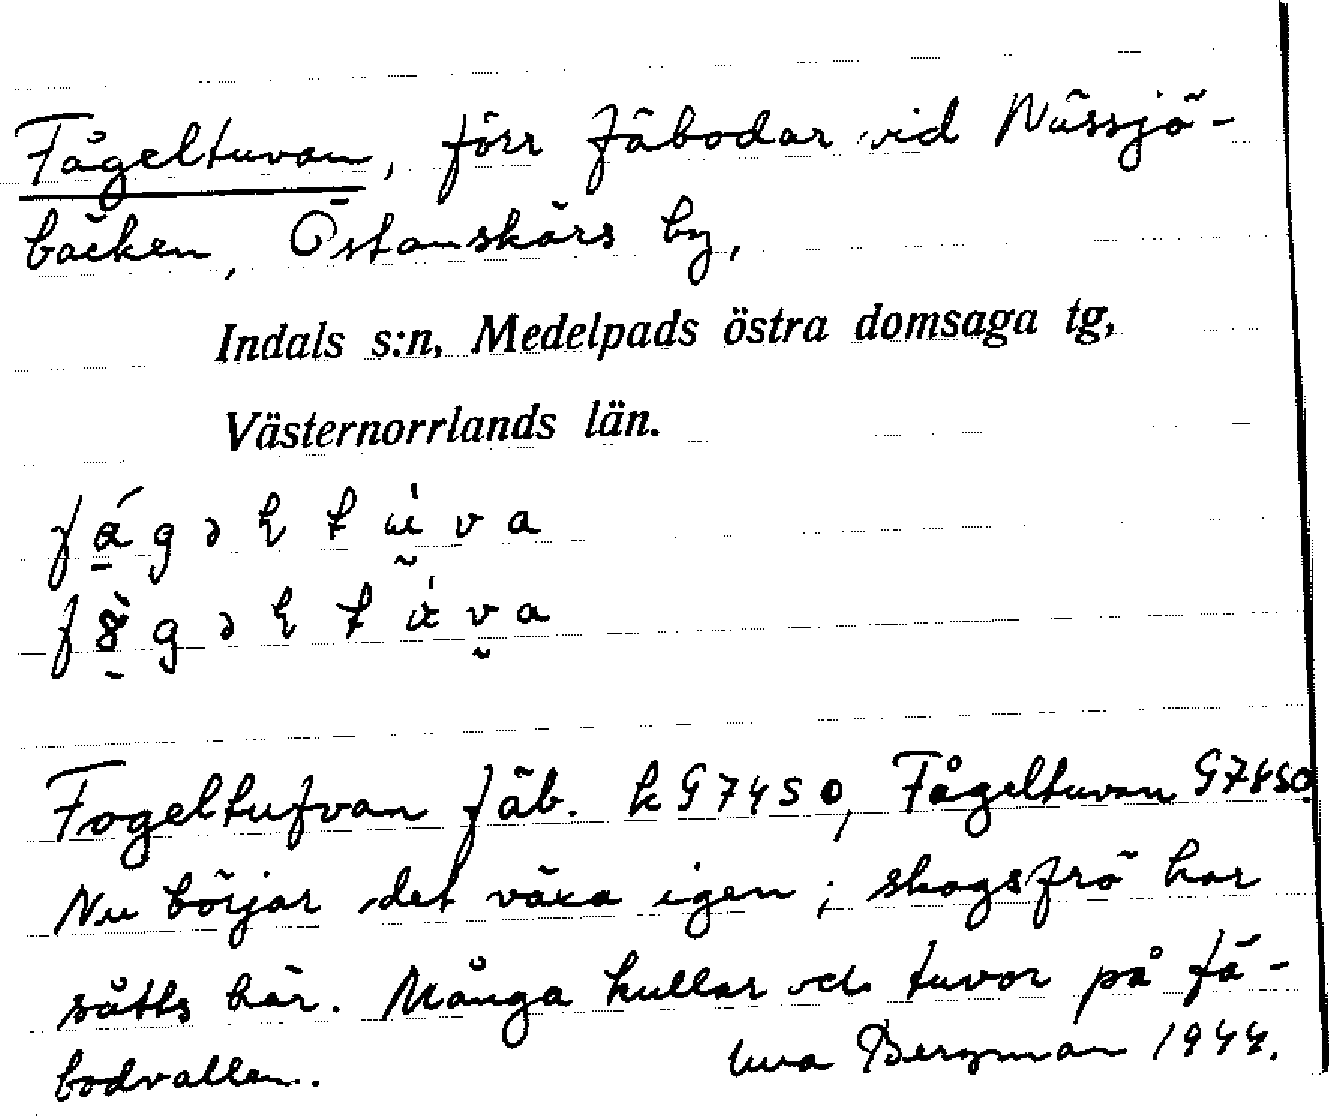 Fågeltuvan, förr fäbodar vid Nässjö-
bäcken, Östanskärs by,
Indals s:n, Medelpads östra domsaga tg,
Västernorrlands län.
Fogeltufvan fäb. k G7450, Fågeltuvan G7450
Nu börjar det växa igen; skogsfrö har
såtts här. Många kullar och tuvor på fä-
bodvallen. Bergman 1944.